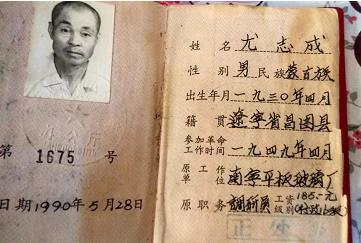 第 1675 号
日期1990年5月28日
姓名 尤志成
性别 男 民族 蒙古族
出生年月 一九三0年四月
籍贯 辽宁省昌图县
参加革命
工作时间 一九四九年四月
原工作
单位 南宁平板玻璃厂
原职务 调研员 工资
级别 185.-元